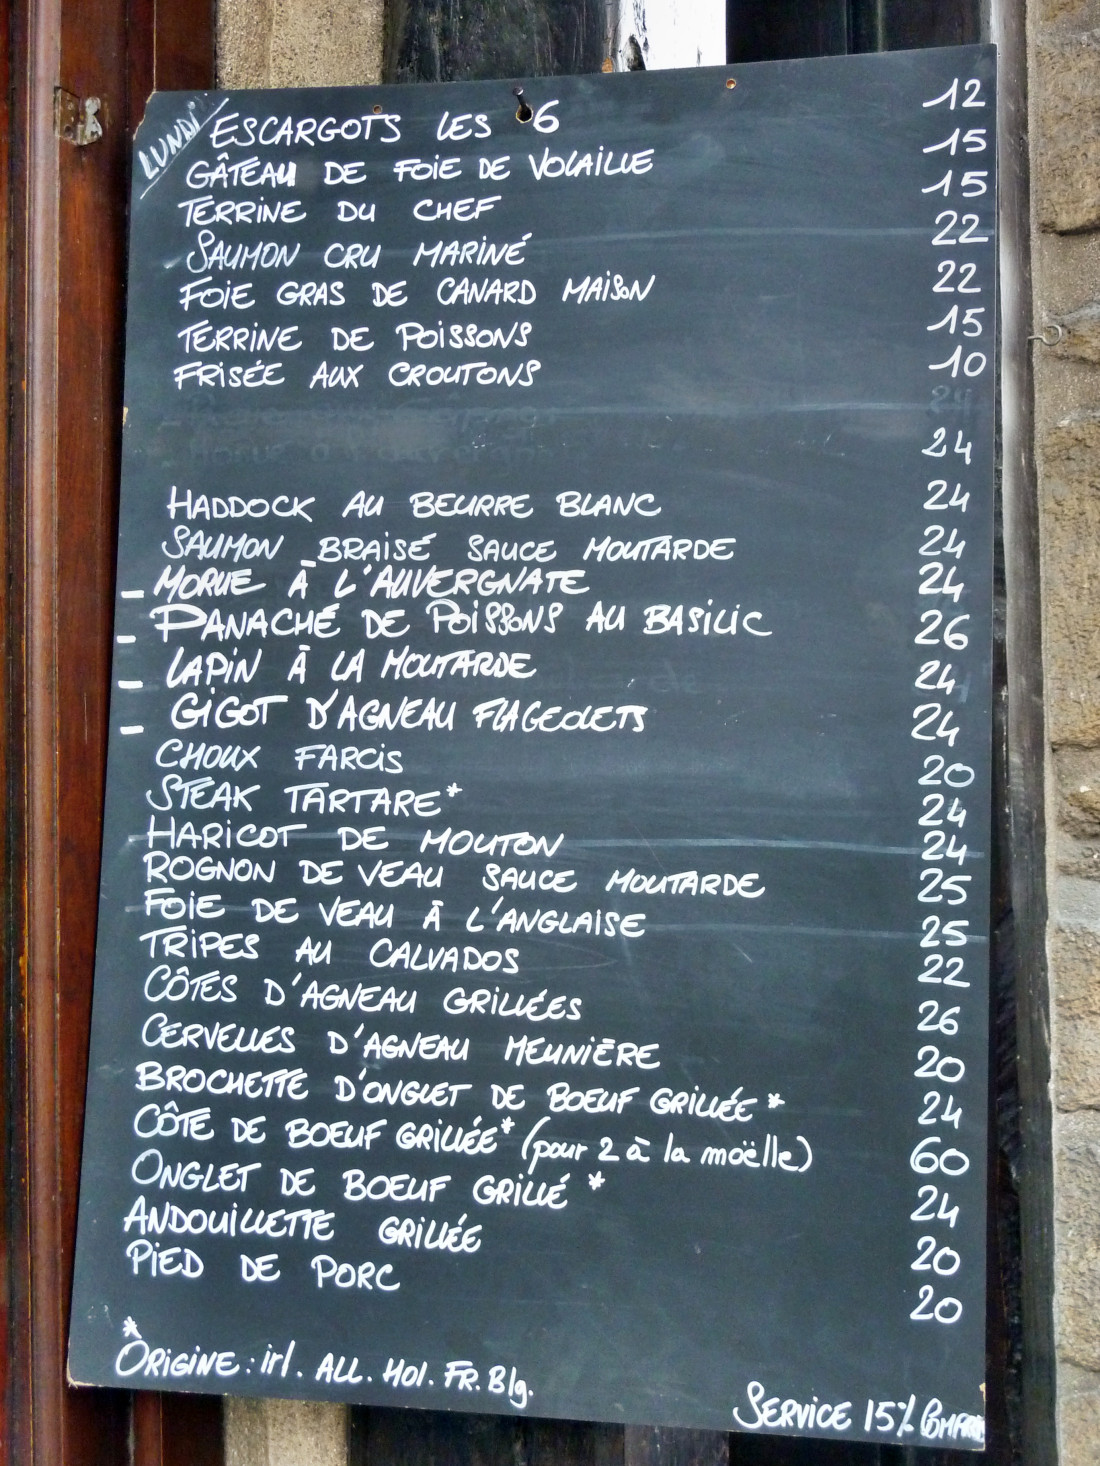 LUNDI
ESCARGOTS LES 6 12
GÂTEAU DE FOIE DE VOLAILLE 15
TERRINE DU CHEF 15
SAUMON CRU MARINÉ 22
FOIE GRAS DE CANARD MAISON 22
TERRINE DE POISSONS 15
FRISÉE AUX CROUTONS 10
24
HADDOCK AU BEURRE BLANC 24
SAUMON BRAISÉ SAUCE MOUTARDE 24
- MORUE À L'AUVERGNATE 24
- PANACHÉ DE POISSONS AU BASILIC 26
- LAPIN À LA MOUTARDE 24
- GIGOT D'AGNEAU FLAGEOLETS 24
CHOUX FARCIS 20
STEAK TARTARE* 24
HARICOT DE MOUTON 24
ROGNON DE VEAU SAUCE MOUTARDE 25
FOIE DE VEAU À L'ANGLAISE 25
TRIPES AU CALVADOS 22
CÔTES D'AGNEAU GRILLÉES 26
CERVELLES D'AGNEAU MEUNIÈRE 20
BROCHETTE D'ONGLET DE BOEUF GRILLÉE* 24
CÔTE DE BOEUF GRILLÉE* (pour 2 à la moëlle) 60
ONGLET DE BOEUF GRILLÉ* 24
ANDOUILLETTE GRILLÉE 20
PIED DE PORC 20
* ORIGINE: irl. ALL. HOl. FR. Blg.
SERVICE 15%